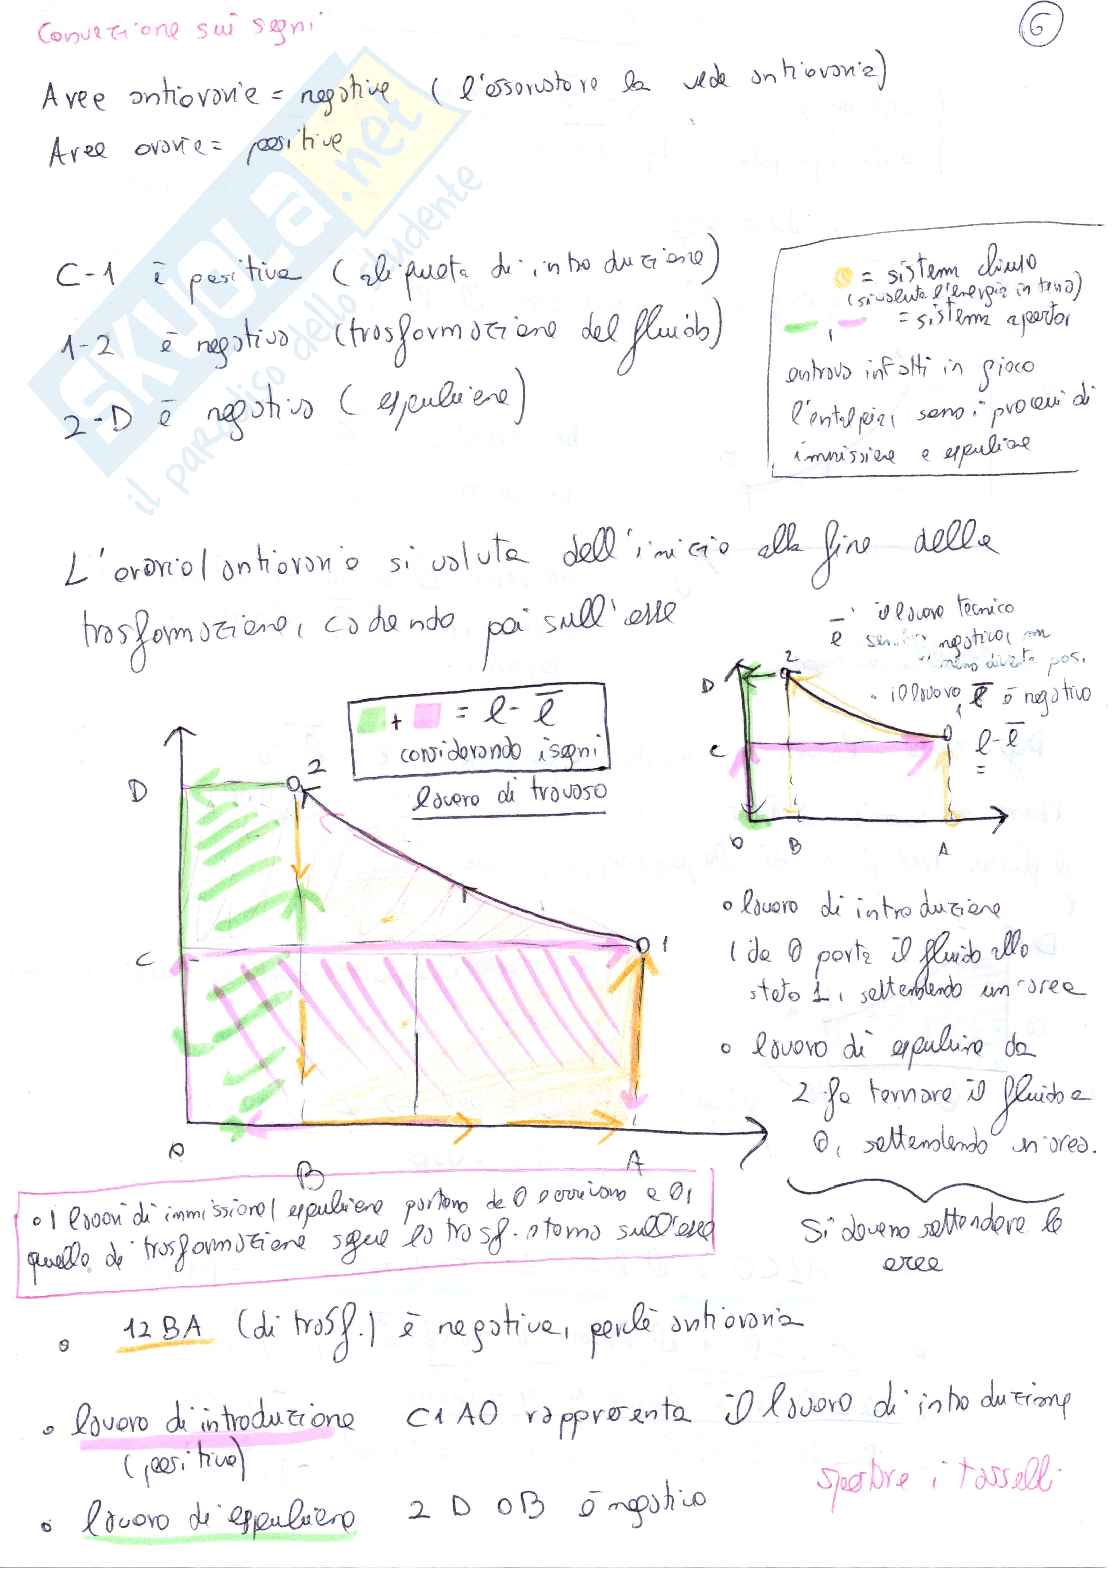 Convezione sui segni
6
Aree antiorarie = negative ( l'osservatore la vede antioraria)
Aree orarie = positive
SKUOLA.net
il paradiso dello studente
C-1 è positiva (aliquota di introduzione)
1-2 è negativo (trasformazione del fluido)
2-D è negativo ( espulsione)
= sistema chiuso
(si valuta l'energia interna)
, = sistema aperto,
entrano infatti in gioco
l'entalpia, sono i processi di
immissione e espulsione
L'orario/antiorario si valuta dall'inizio alla fine della
trasformazione, cadendo poi sull'asse
+ = l - l̅
considerando i segni
lavoro di travaso
il lavoro tecnico
negativo,
diventa pos.
il lavoro l̅ è negativo
l - l̅
=
2
D
C
1
O
B
A
D
2
C
1
O
B
A
o lavoro di introduzione
(da O porta il fluido allo
stato 1, sottendendo un'area
o lavoro di espulsione da
2 fa tornare il fluido a
O, sottendendo un'area.
Si devono sottendere le
aree
o I lavori di immissione/ espulsione partono da O o arrivano a O,
quello di trasformazione segue la trasf. stando sull'asse
o 12BA (di trasf.) è negativa, perché antioraria
o lavoro di introduzione C1AO rappresenta il lavoro di introduzione
(positivo)
o lavoro di espulsione 2DOB è negativo
spostare i tasselli